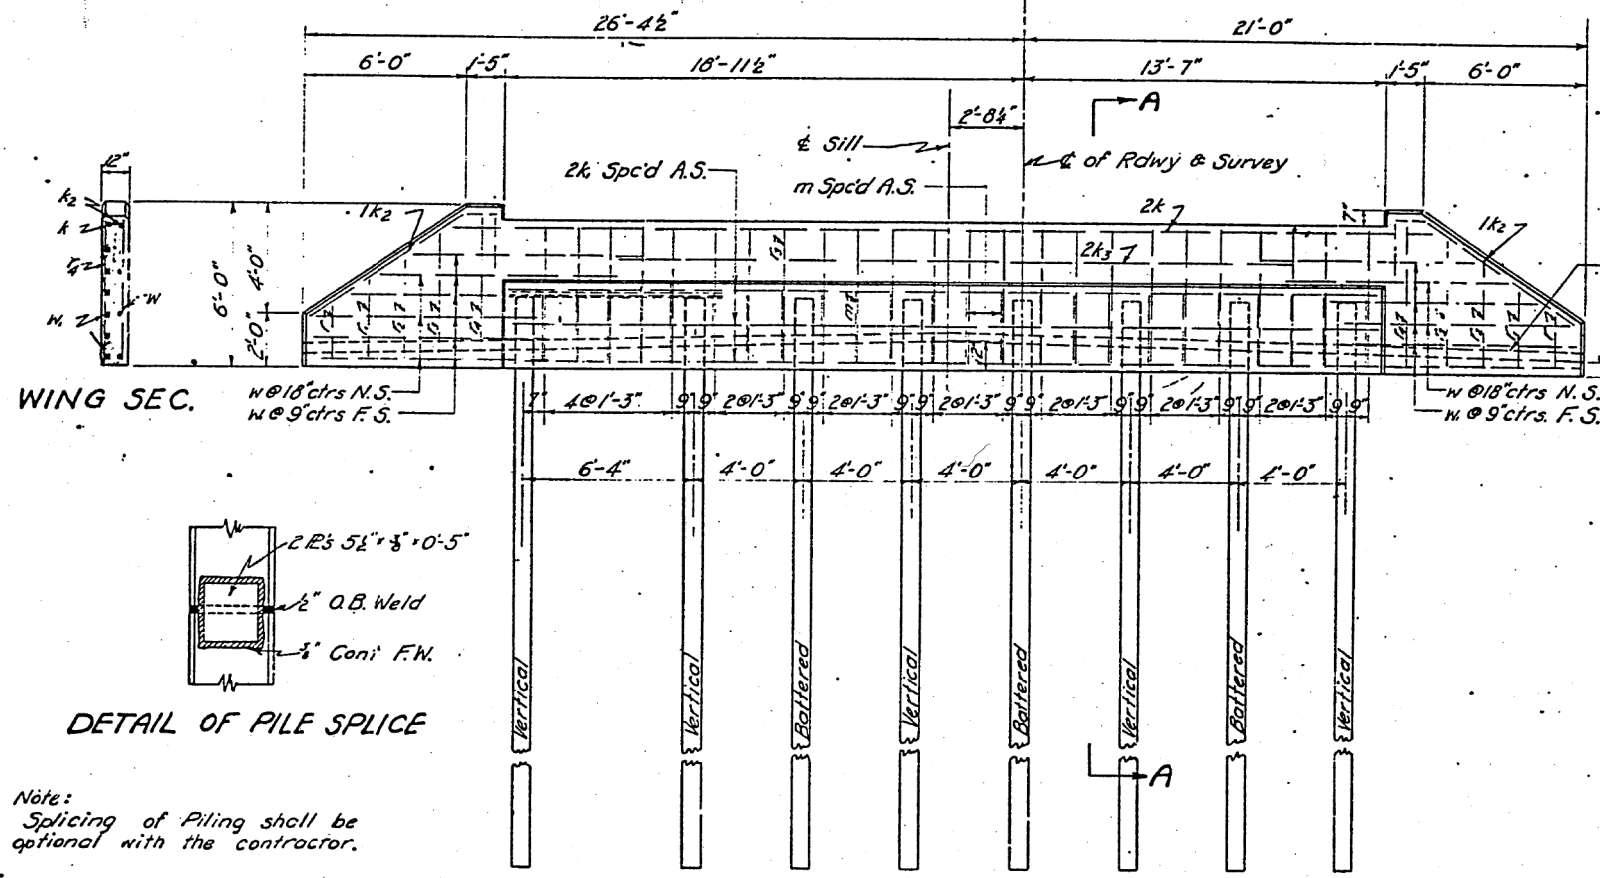 26'-4½"
21'-0"
6'-0"
1'-5"
18'-11½"
13'-7"
1'-5"
6'-0"
A
2'-8¼"
℄ Sill
℄ of Rdwy & Survey
12"
2k₁ Spc'd A.S.
m Spc'd A.S.
k₂
k
1k₂
2k
7"
1k₂
2k₃
6'-0"
4'-0"
2'-0"
w
w₁
WING SEC.
w @ 18" ctrs N.S.
w₁ @ 9" ctrs F.S.
w @ 18" ctrs N.S.
w₁ @ 9" ctrs. F.S.
7" 4@1'-3" 9" 9" 2@1'-3" 9" 9" 2@1'-3" 9" 9" 2@1'-3" 9" 9" 2@1'-3" 9" 9" 2@1'-3" 9" 9" 2@1'-3" 9" 9"
6'-4" 4'-0" 4'-0" 4'-0" 4'-0" 4'-0" 4'-0"
2 ℙ's 5½" x ⅜" x 0'-5"
½" O.B. Weld
⅜" Cont F.W.
DETAIL OF PILE SPLICE
Vertical
Vertical
Battered
Vertical
Battered
Vertical
Battered
Vertical
A
Note:
Splicing of Piling shall be
optional with the contractor.